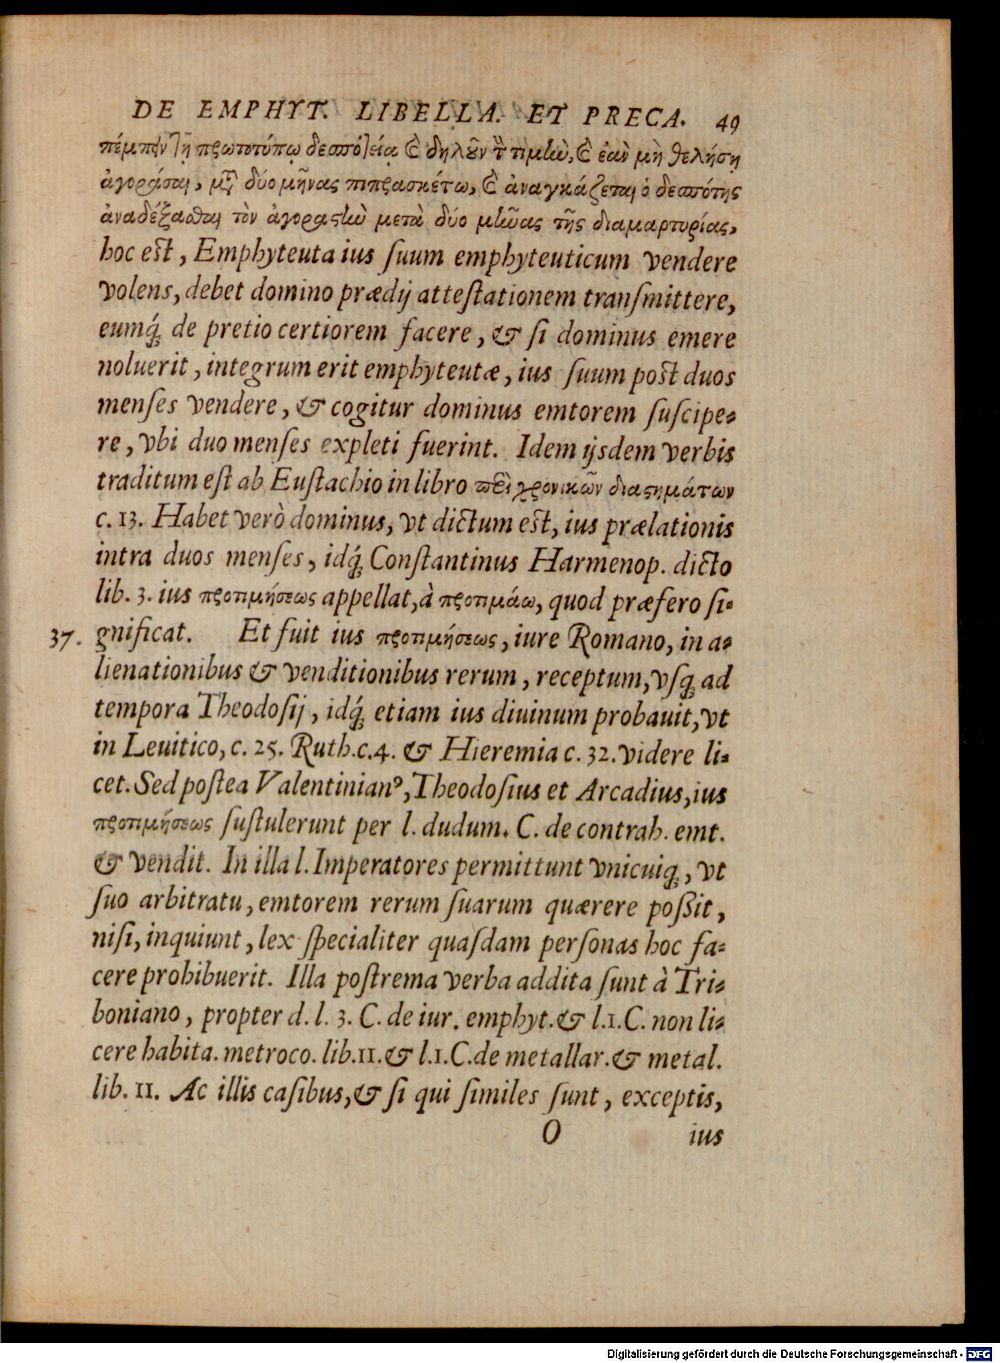 DE EMPHYT. LIBELLA. ET PRECA. 49
πέμπειν τῇ πρωτοτύπῳ δεσποτείᾳ καὶ δηλοῦν τὴν τιμὴν, καὶ ἐὰν μὴ θελήσῃ
ἀγοράσαι, μετὰ δύο μῆνας πιπρασκέτω, καὶ ἀναγκάζεται ὁ δεσπότης
ἀναδέξασθαι τὸν ἀγοραστὴν μετὰ δύο μῆνας τῆς διαμαρτυρίας,
hoc est, Emphyteuta ius suum emphyteuticum vendere
volens, debet domino prædij attestationem transmittere,
eumq́; de pretio certiorem facere, & si dominus emere
noluerit, integrum erit emphyteutæ, ius suum post duos
menses vendere, & cogitur dominus emtorem suscipe-
re, vbi duo menses expleti fuerint. Idem ijsdem verbis
traditum est ab Eustachio in libro περὶ χρονικῶν διαστημάτων
c. 13. Habet verò dominus, vt dictum est, ius prælationis
intra duos menses, idq́; Constantinus Harmenop. dicto
lib. 3. ius προτιμήσεως appellat, à προτιμάω, quod præfero si-
37. gnificat. Et fuit ius προτιμήσεως, iure Romano, in a-
lienationibus & venditionibus rerum, receptum, vsq; ad
tempora Theodosij, idq́; etiam ius diuinum probauit, vt
in Leuitico, c. 25. Ruth. c. 4. & Hieremia c. 32. videre li-
cet. Sed postea Valentinianꝰ, Theodosius et Arcadius, ius
προτιμήσεως sustulerunt per l. dudum. C. de contrah. emt.
& vendit. In illa l. Imperatores permittunt vnicuiq;, vt
suo arbitratu, emtorem rerum suarum quærere poßit,
nisi, inquiunt, lex specialiter quasdam personas hoc fa-
cere prohibuerit. Illa postrema verba addita sunt à Tri-
boniano, propter d. l. 3. C. de iur. emphyt. & l. 1. C. non li-
cere habita. metroco. lib. 11. & l. 1. C. de metallar. & metal.
lib. 11. Ac illis casibus, & si qui similes sunt, exceptis,
O ius
Digitalisierung gefördert durch die Deutsche Forschungsgemeinschaft - DFG